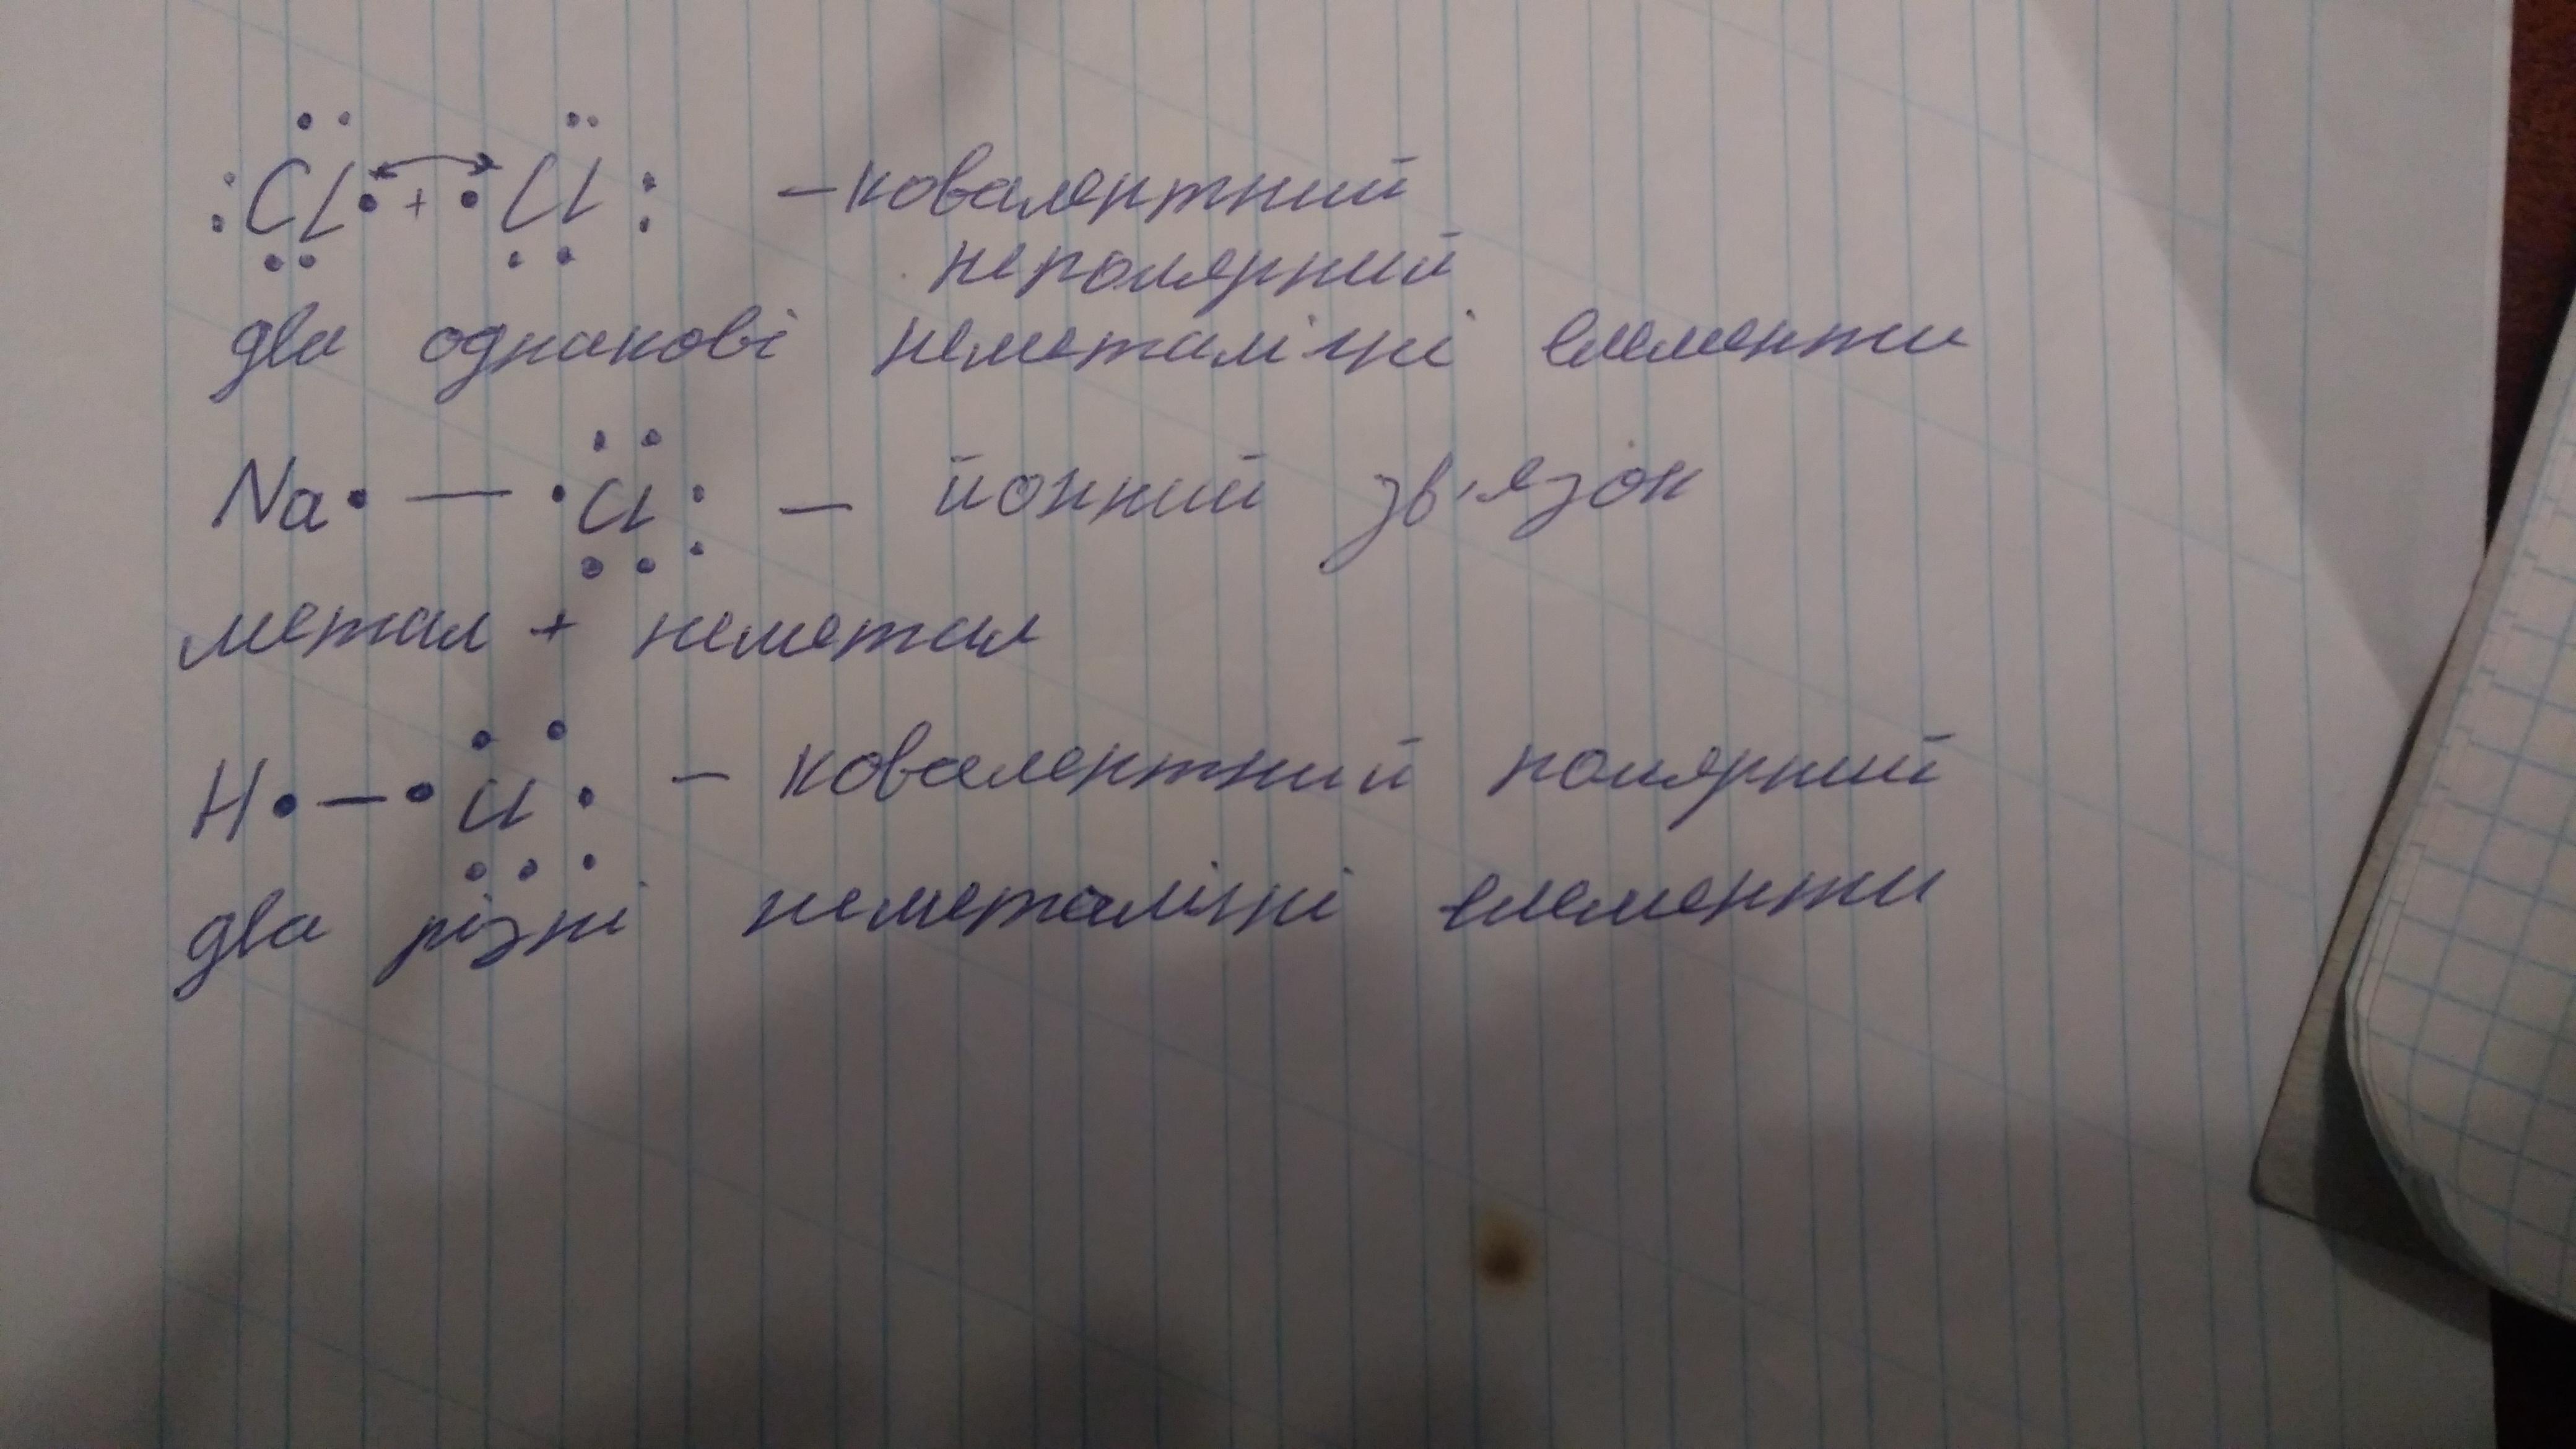 :Cl• + •Cl: – ковалентний
неполярний
два однакові неметалічні елементи
Na• — •Cl: – йонний зв'язок
метал + неметал
H• – •Cl: – ковалентний полярний
два різні неметалічні елементи